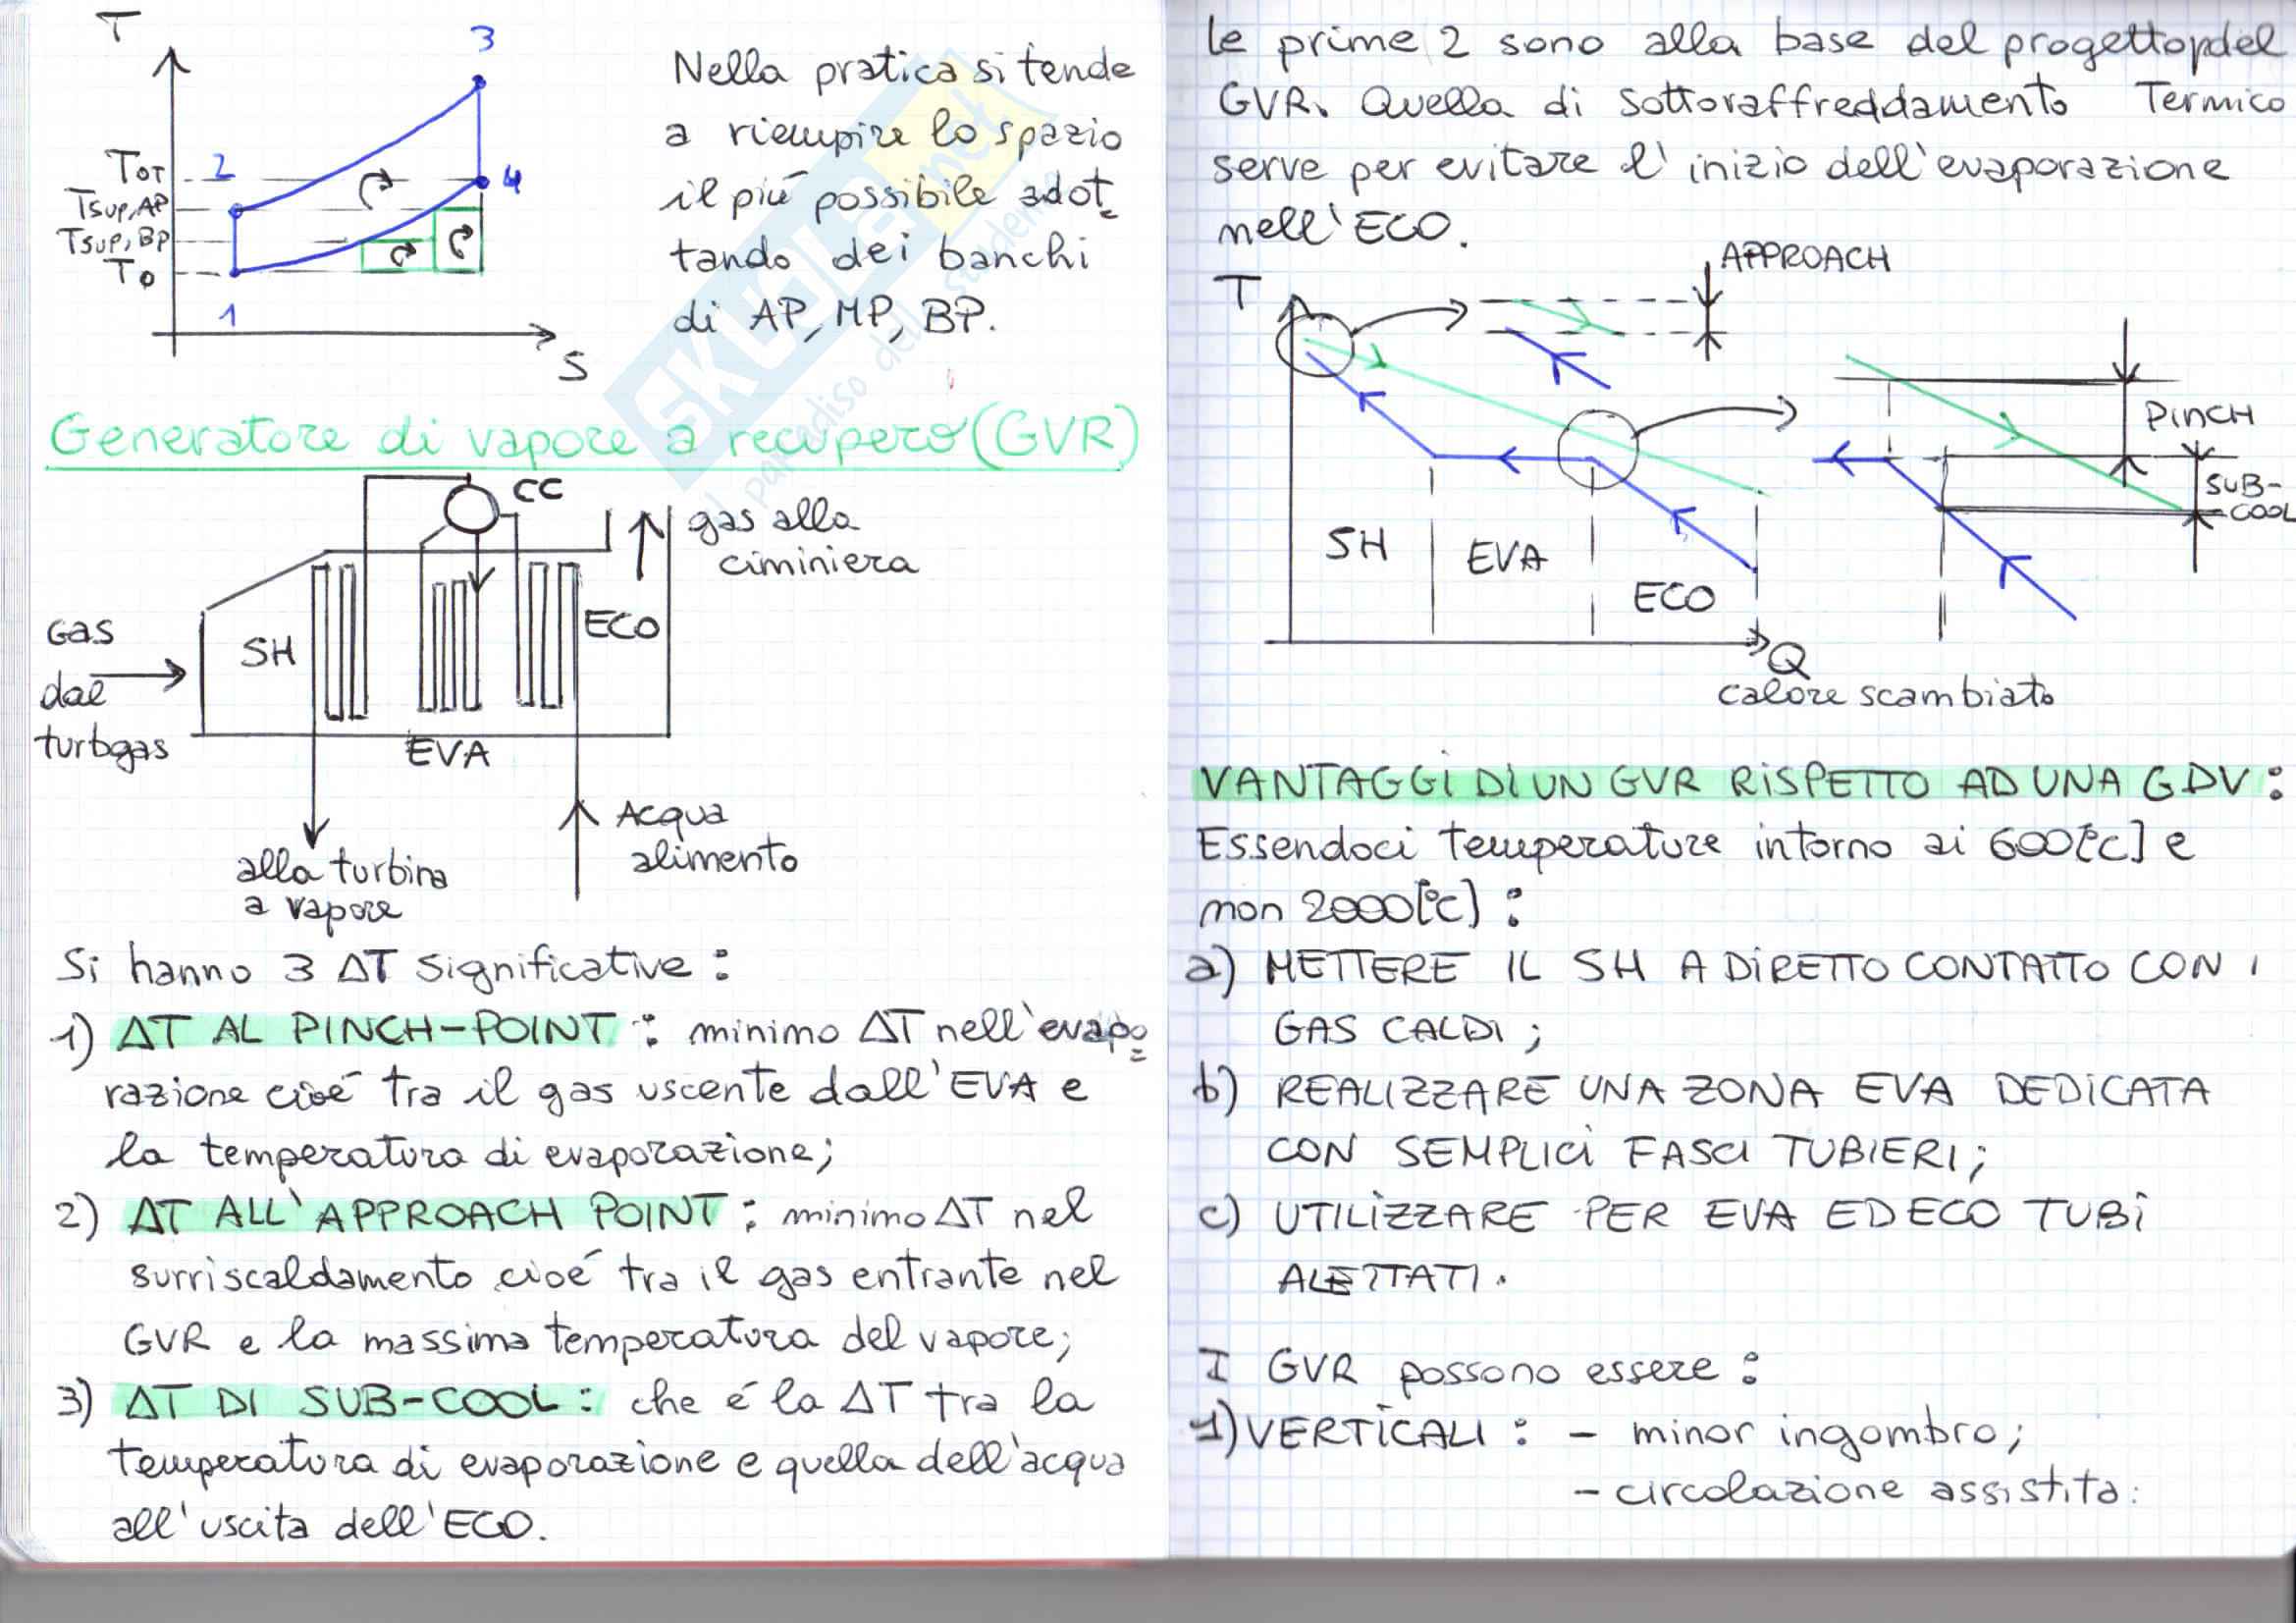 T
3
2
4
TOT
Tsup,AP
Tsup,BP
To
1
S
Nella pratica si tende
a riempire lo spazio
il più possibile adot=
tando dei banchi
di AP, MP, BP.
SKUOLA.net
il paradiso dello studente
Generatore di vapore a recupero (GVR)
CC
gas alla
ciminiera
Gas
dal
turbgas
SH
ECO
EVA
Acqua
alimento
alla turbina
a vapore
Si hanno 3 ΔT significative :
1) ΔT AL PINCH-POINT : minimo ΔT nell'evapo=
razione cioé tra il gas uscente dall'EVA e
la temperatura di evaporazione;
2) ΔT ALL'APPROACH POINT : minimo ΔT nel
surriscaldamento cioé tra il gas entrante nel
GVR e la massima temperatura del vapore;
3) ΔT DI SUB-COOL : che é la ΔT tra la
temperatura di evaporazione e quella dell'acqua
all'uscita dell'ECO.
le prime 2 sono alla base del progetto del
GVR. Quella di sottoraffreddamento Termico
serve per evitare l'inizio dell'evaporazione
nell'ECO.
T
APPROACH
PINCH
SUB-
COOL
SH
EVA
ECO
Q
calore scambiato
VANTAGGI DI UN GVR RISPETTO AD UNA GDV :
Essendoci temperature intorno ai 600[°C] e
non 2000[°C] :
a) METTERE IL SH A DIRETTO CONTATTO CON I
GAS CALDI ;
b) REALIZZARE UNA ZONA EVA DEDICATA
CON SEMPLICI FASCI TUBIERI ;
c) UTILIZZARE PER EVA ED ECO TUBI
ALETTATI.
I GVR possono essere :
1) VERTICALI : - minor ingombro;
- circolazione assistita.